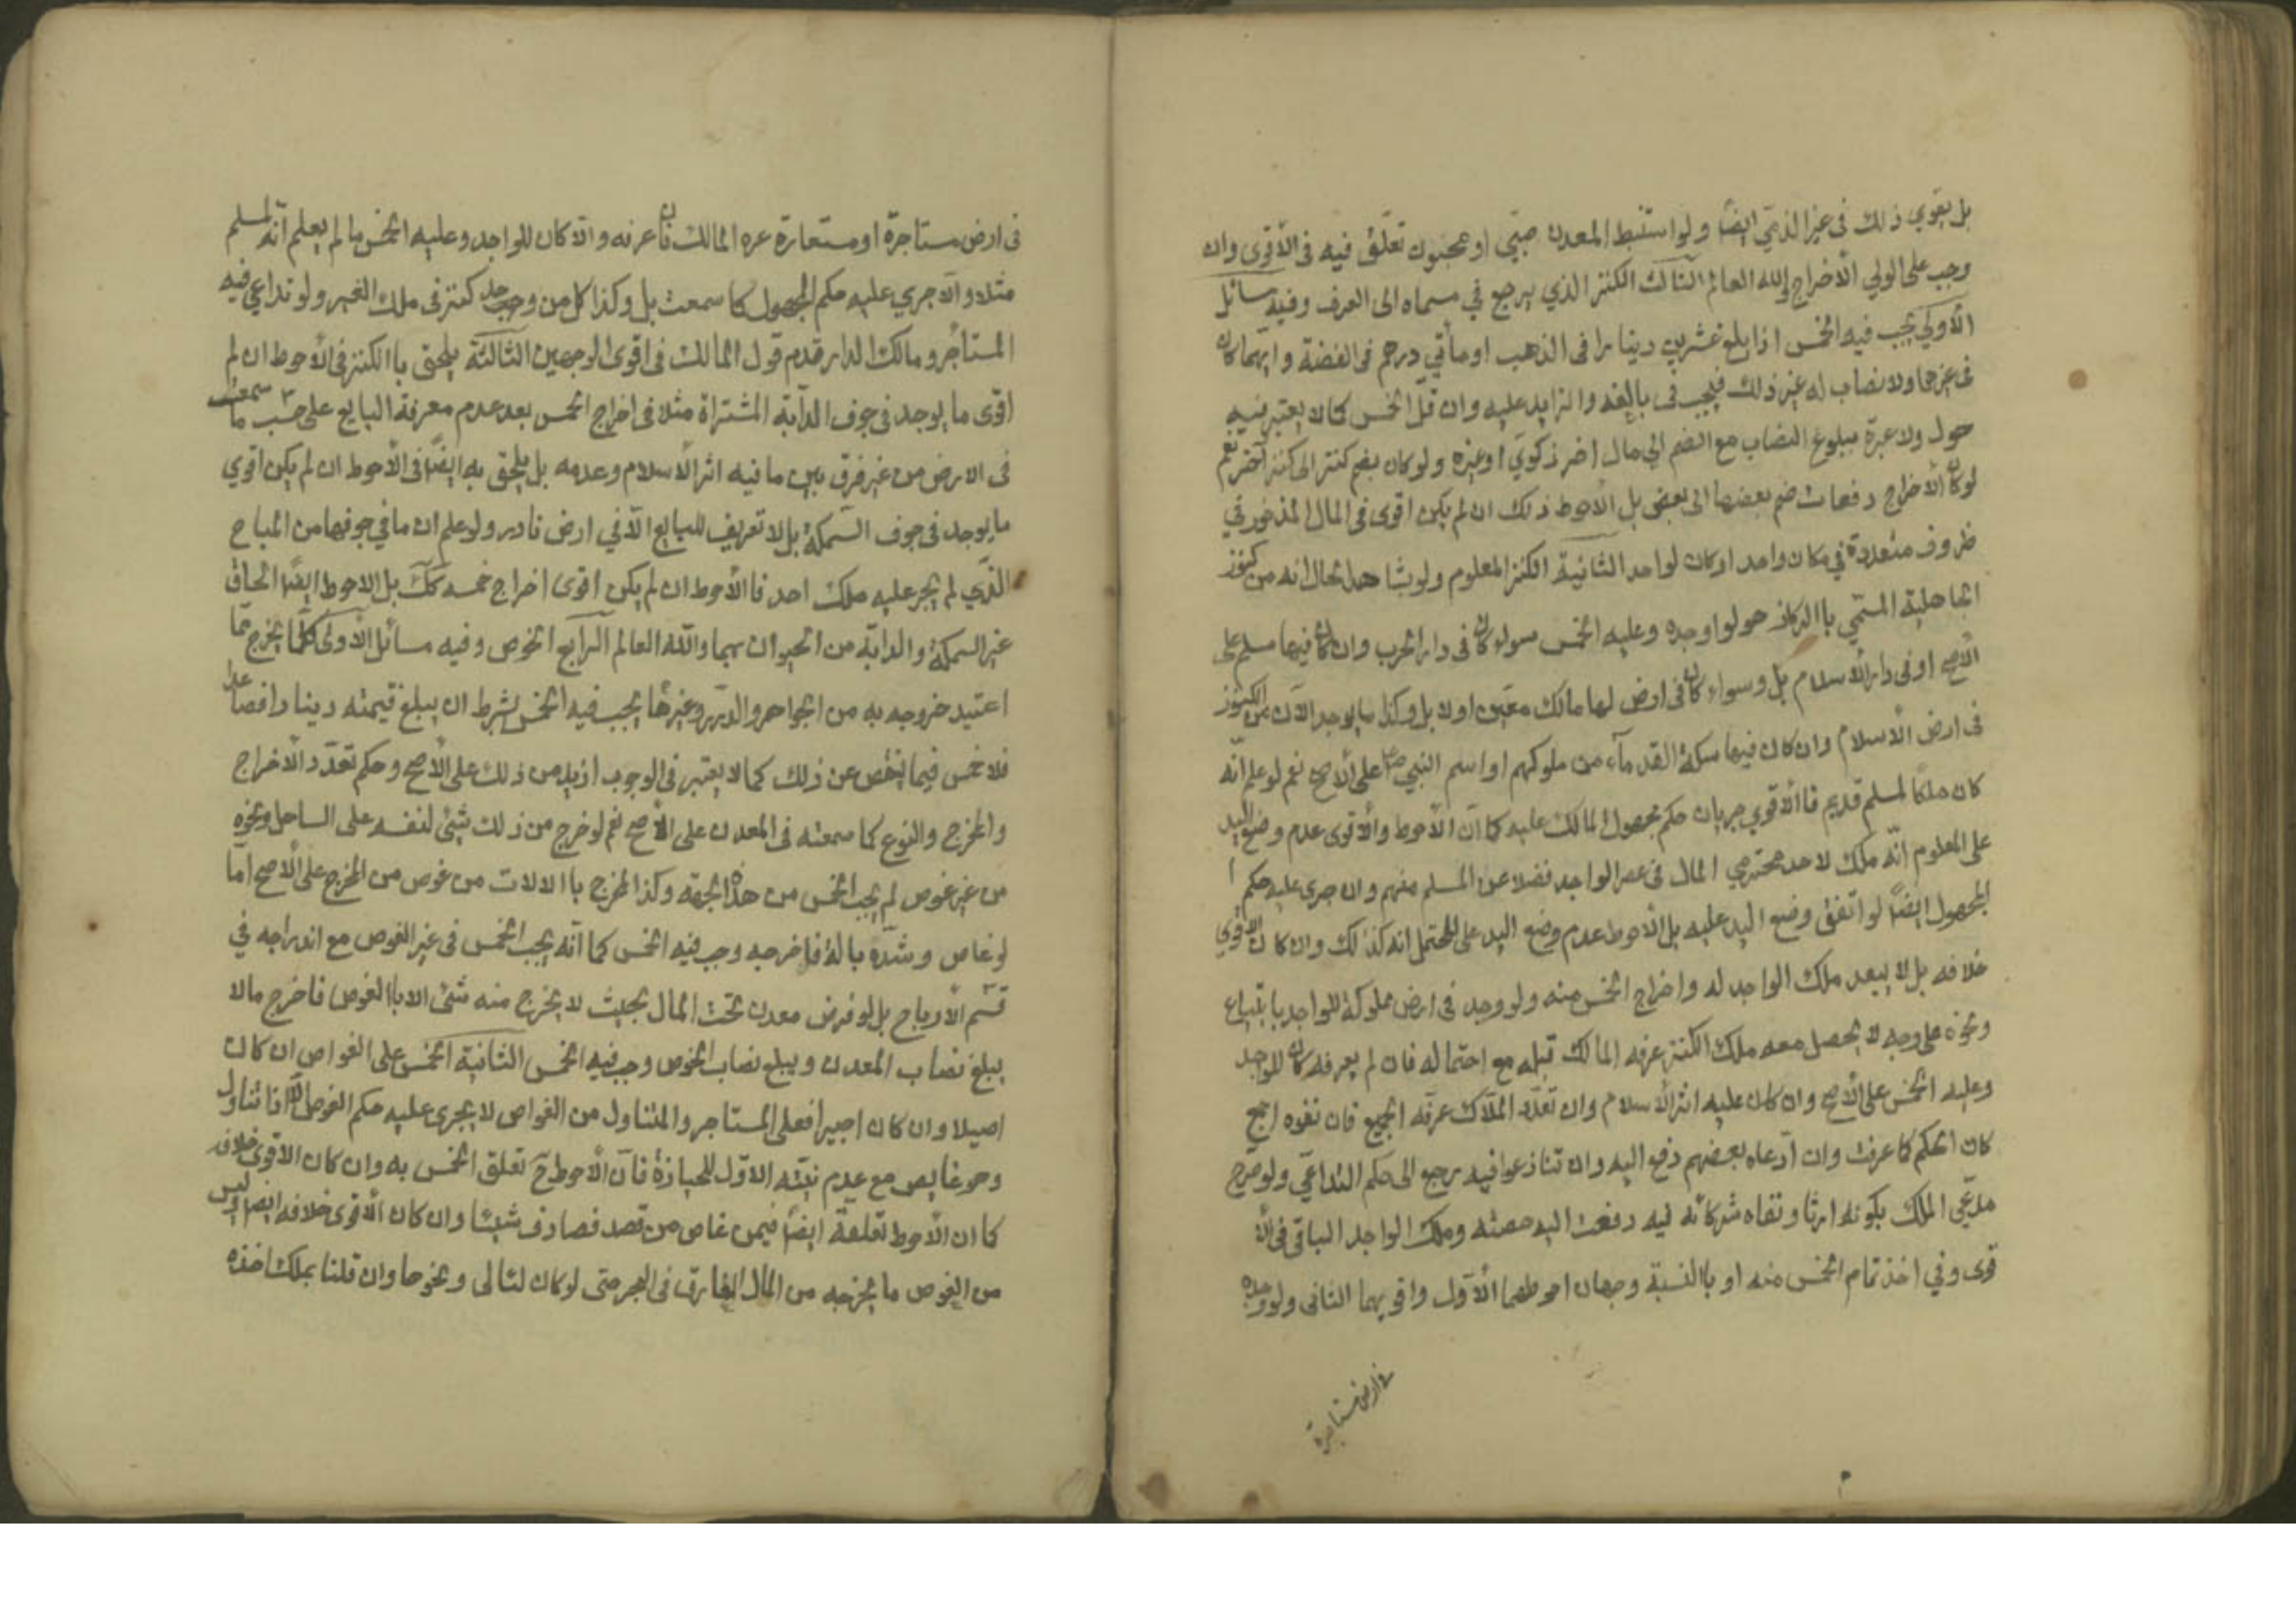 بل يقوى ذلك فى غير الذمّي ايضًا ولو استنبط المعدن صبّي او مجنون تعلّق فيه فى الأقوى وان
وجب على الولي الأخراج والله العالم الثالث الكنز الذي يرجع في مسماه الى العرف وفيه مسائل
الأولى يجب فيه الخمس اذا بلغ عشرين دينارا فى الذهب او مأتي درهم فى الفضة و ايهما كان
فى غيرهما ولا نصاب له غير ذلك فيجب فى بالغه والزايد عليه وان قلّ الخمس كما لا يعتبر فيه
حول ولا عبرة ببلوغ النصاب مع الضم الى مال اخر زكوي او غيره ولو كان بضم كنز الى كنز آخر نعم
لو كان الأخراج دفعات ضم بعضها الى بعض بل الأحوط ذلك ان لم يكن اقوى فى المال المذخور في
ظروف متعددة في مكان واحد او كان لواحد الثانية الكنز المعلوم ولو بشاهد الحال انه من كنوز
الجاهلية المسمّي باالركاز هو لواجده وعليه الخمس سواء كان فى دار الحرب وان كان فيها مسلم على
الأصح او فى دار الأسلام بل وسواء كان فى ارض لها مالك معيّن اولا بل وكذا ما يوجد الآن من الكنوز
فى ارض الأسلام وان كان فيها سكة القدمآء من ملوكهم او اسم النبي ص على الأصح نعم لو علم انّه
كان ملكا لمسلم قديم فاالأقوى جريان حكم مجهول المالك عليه كما انّ الأحوط والأقوى عدم وضع اليد
على المعلوم انّه ملك لاحد محترمي المال فى عصر الواجد فضلا عن المسلم منهم وان جرى عليه حكم ا
لمجهول ايضًا لو اتفق وضع اليد عليه بل الأحوط عدم وضع اليد على المحتمل انه كذلك وان كان الأقوى
خلافه بل لا يبعد ملك الواجد له واخراج الخمس منه ولو وجد فى ارض مملوكة للواجد بابتياع
ونحوه على وجه لا يحصل معه ملك الكنز عرفه المالك قبله مع احتماله فان لم يعرفه كان للواجد
وعليه الخمس على الأصح وان كان عليه اثر الأسلام وان تعدّد الملّاك عرفه الجميع فان نفوه اجمع
كان الحكم كما عرفت وان ادّعاه بعضهم دفع اليه وان تنازعوا فيه يرجع الى حكم التداعي ولو صرح
مدّعي الملك بكونه ارثا ونفاه شركائه فيه دفعت اليه حصته وملك الواجد الباقى فى الأ
قوى وفي اخذ تمام الخمس منه او باالنسبة وجهان احوطهما الأوّل واقويهما الثانى ولو وجده
فى ارض مستاجرة
فى ارض مستاجرة او مستعارة عرفه المالك فان عرفه والا كان للواجد وعليه الخمس ما لم يعلم انّه لمسلم
مثلا والّا جرى عليه حكم المجهول كما سمعت بل وكذا كل من وجد كنز فى ملك الغير ولو تداعي فيه
المستأجر ومالك الدار قدم قول المالك فى اقوى الوجهين الثالثة يلحق باالكنز فى الأحوط ان لم
اقوى ما يوجد فى جوف الدآبة المشتراة مثلا فى اخراج الخمس بعد عدم معرفة البايع على حسب ما سمعت
فى الارض من غير فرق بين ما فيه اثر الأسلام وعدمه بل يلحق به ايضًا فى الأحوط ان لم يكن اقوى
ما يوجد فى جوف السّمكة بل لا تعريف للبايع الّا في ارض نادر ولو علم ان ما في جوفها من المباح
الذي لم يجر عليه ملك احد فاالأحوط ان لم يكن اقوى اخراج خمسه كك بل الاحوط ايضًا الحاق
غير السمكة والدابة من الحيوان بهما والله العالم الرابع الغوص وفيه مسائل الأولى كلّما يخرج ممّا
اعتيد خروجه به من الجواهر والدرر وغيرها يجب فيه الخمس بشرط ان يبلغ قيمته دينارا فصاعدا
فلا خمس فيما ينقص عن ذلك كما لا يعتبر فى الوجوب ازيد من ذلك على الأصح وحكم تعدّد الأخراج
والمخرج والنوع كما سمعته فى المعدن على الأصح نعم لو خرج من ذلك شيئ لنفسه على الساحل ونحوه
من غير غوص لم يجب الخمس من هذه الجهة وكذا المخرج باالالات من غوص من المخرج على الأصح امّا
لو غاص وشدّه بالة فاخرجه وجب فيه الخمس كما انّه يجب الخمس فى غير الغوص مع اندراجه في
قسم الأرباح بل لو فرض معدن تحت المال بحيث لا يخرج منه شئ الا باالغوص فاخرج مالا
يبلغ نصاب المعدن ويبلغ نصاب الغوص وجب فيه الخمس الثانية الخمس على الغواص ان كان
اصيلا وان كان اجيرا فعلى المستاجر والمتناول من الغواص لا يجرى عليه حكم الغوص الّا اذا تناول
وهو غايص مع عدم نيّته الاوّل للحيازة فانّ الأحوط ح تعلق الخمس به وان كان الاقوى خلافه
كما ان الأحوط تعلقه ايضًا فيمن غاص من قصد فصادف شيئًا وان كان الأقوى خلافه ايضا ليس
من الغوص ما يخرجه من المال الغارق فى البحر حتى لو كان لئالى ونحوها وان قلنا بملك اخذه